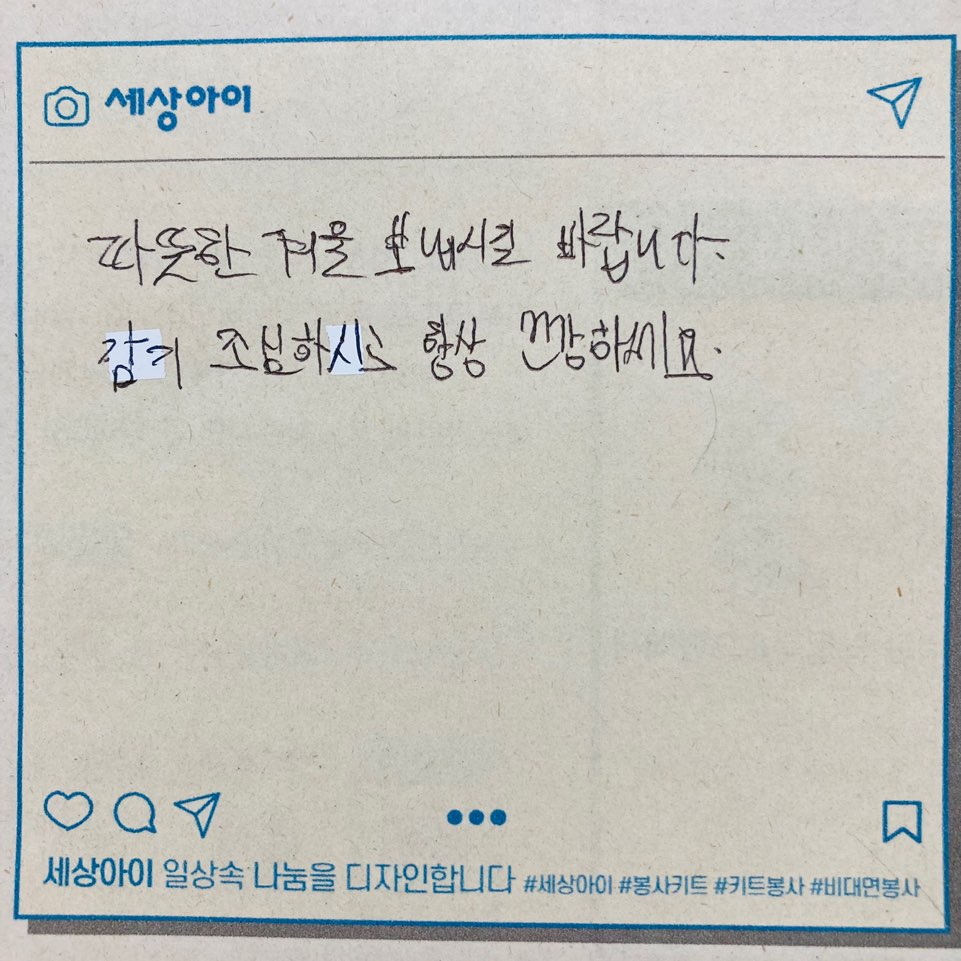 세상아이
따뜻한 겨울 보냅시길 바랍니다.
감기 조심하시고 항상 건강하세요.
세상아이 일상속 나눔을 디자인합니다 #세상아이 #봉사키트 #키트봉사 #비대면봉사